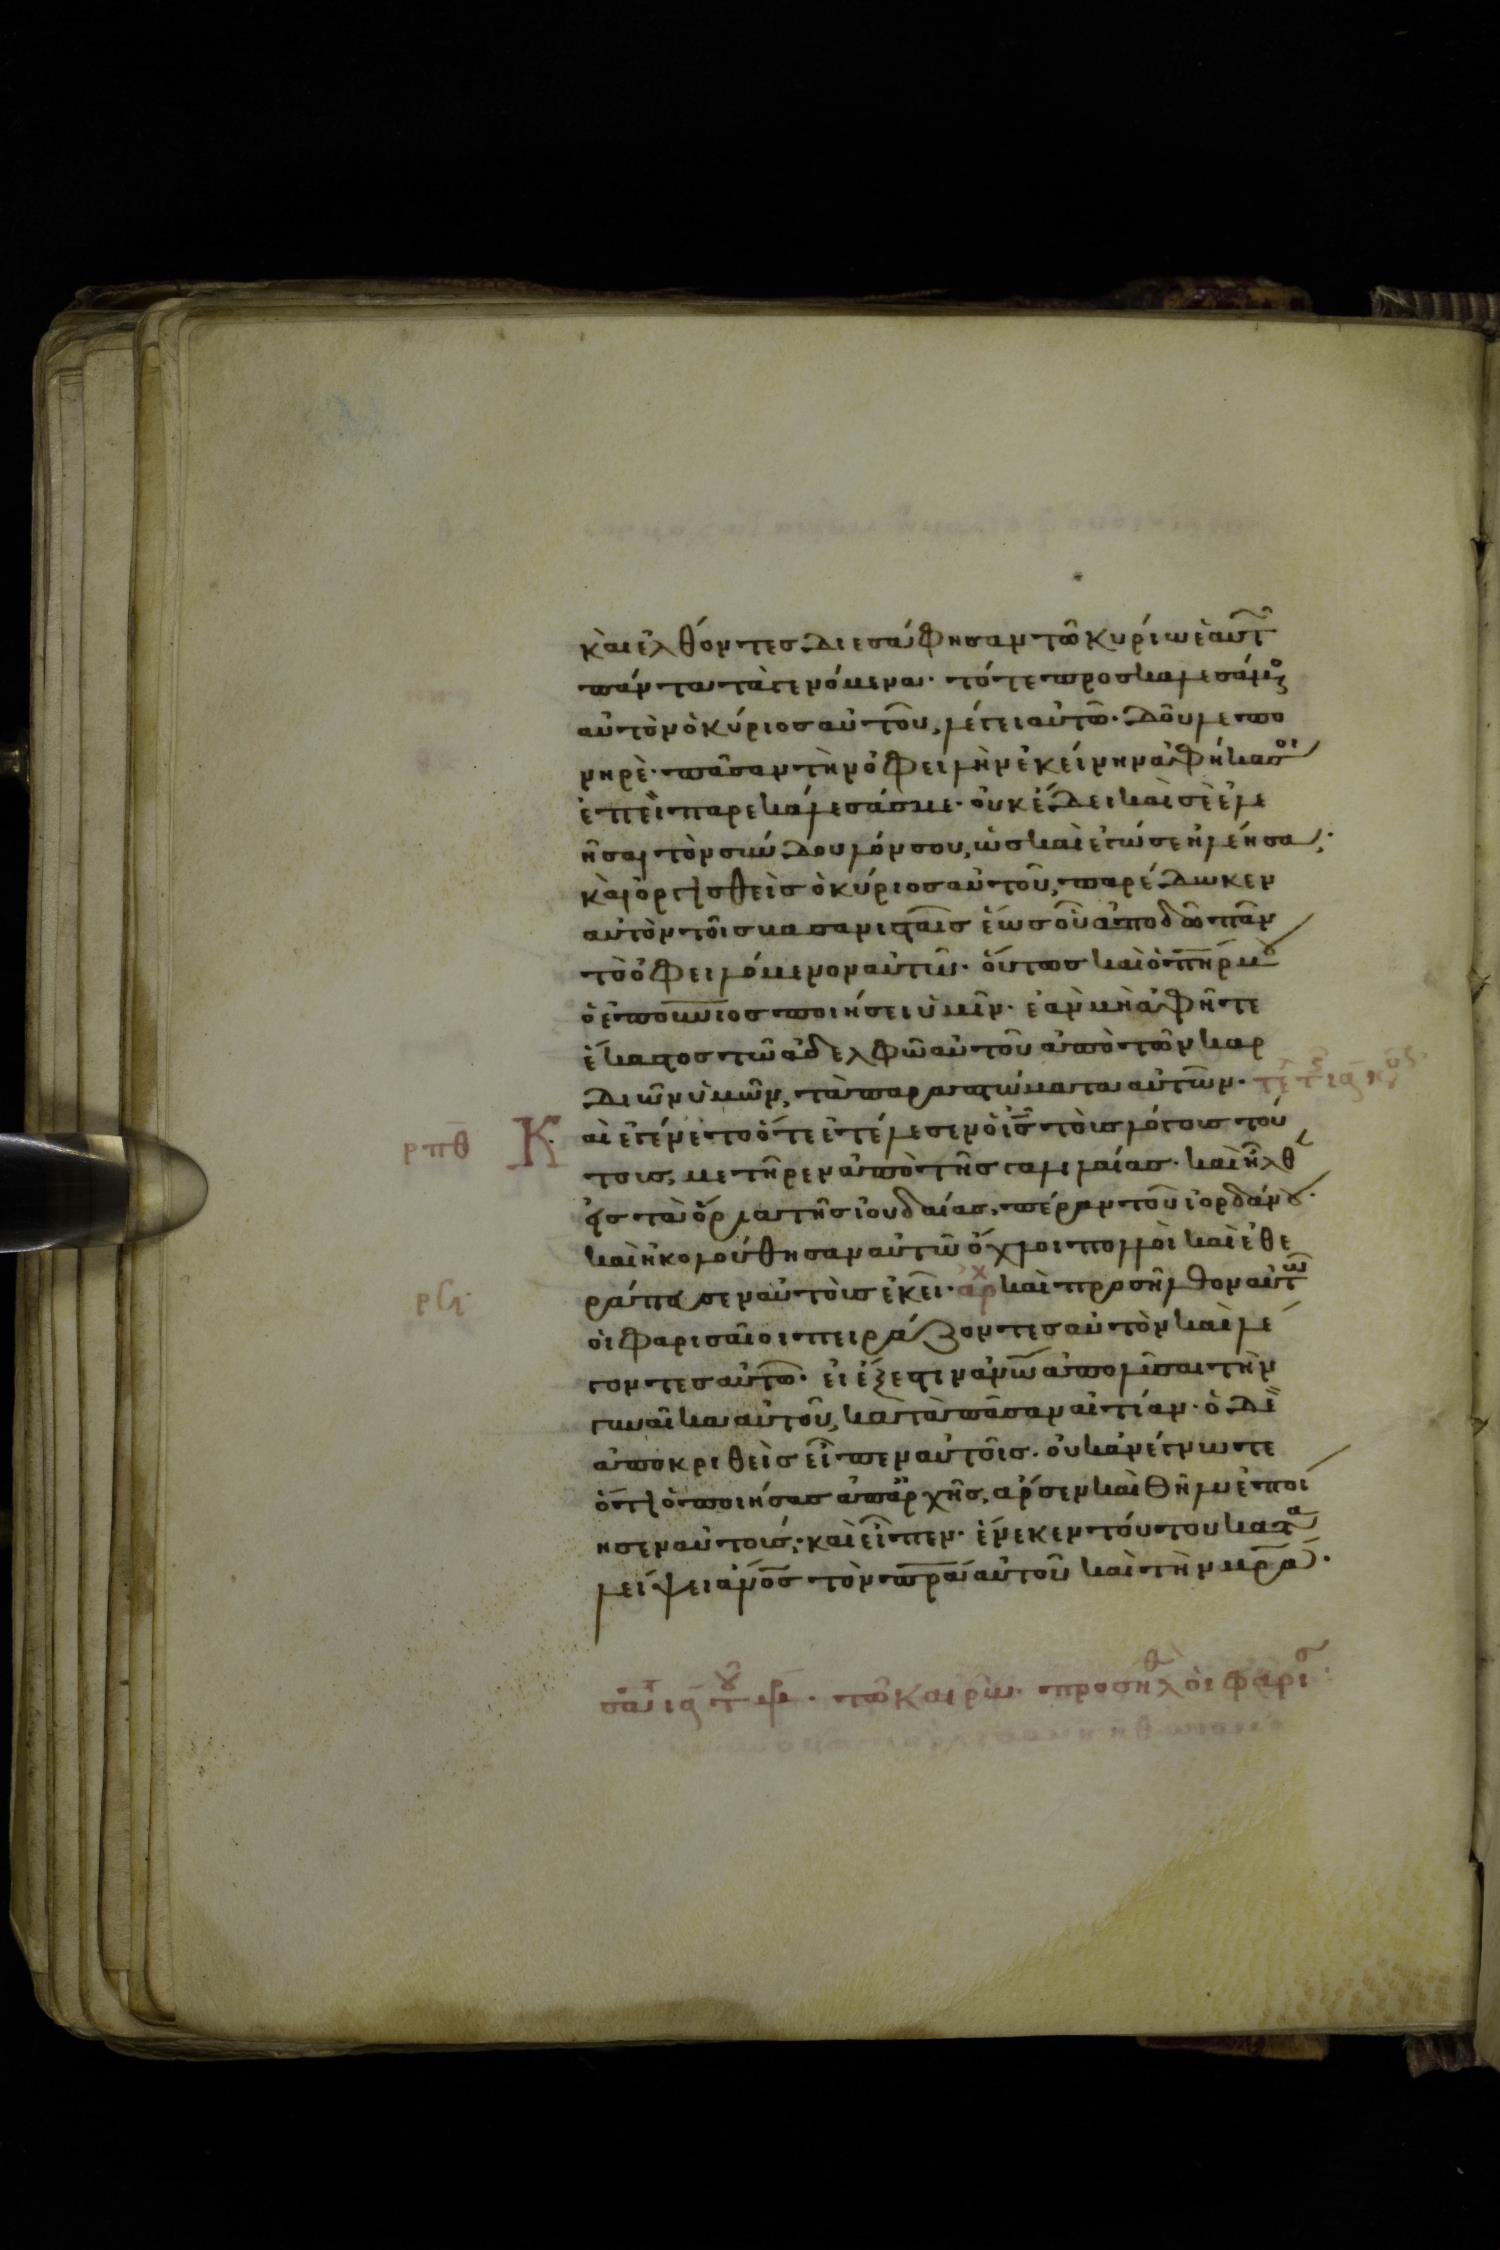 κὰι ἐλθόντες διεσάφησαν τῶ κυρίω ἑαυτ
πάντα τὰ γενόμενα· τότε προσκαλεσάμος
αὐτὸν ὁ κύριος αὐτοῦ, λέγει αὐτῶ· δοῦλε πο
νηρὲ· πᾶσαν τὴν ὀφειλὴν ἐκείνην ἀφῆκά σοι
ἐπεὶ παρεκάλεσάς με· οὐκ ἔδει καὶ σὲ ἐλε
ῆσαι τὸν σύνδουλόν σου, ὡς καὶ ἐγώ σε ἠλέησα;
κὰι ὀργισθεὶς ὁ κύριος αὐτοῦ, παρέδωκεν
αὐτὸν τοῖς βασανισταῖς ἕως οὗ ἀποδῶ πᾶν
τὸ ὀφειλόμενον αὐτῶ· οὕτως καὶ ὁ πηρ μου
ὁ ἐπουνιος ποιήσει ὑμῖν· ἐὰν μὴ ἀφῆτε
ἕκαστος τῶ ἀδελφῶ αὐτοῦ ἀπὸ τῶν καρ
διῶν ὑμῶν, τὰ παραπτώματα αὐτῶν·
ρπθ Καὶ ἐγένετο ὅτε ἐτέλεσεν ὁ ις τοὺς λόγους τού
τους, μετῆρεν ἀπὸ τῆς γαλιλαίας· καὶ ἦλθεν
εἰς τὰ ὅρια τῆς ἰουδαίας, πέραν τοῦ ἰορδάνου·
καὶ ἠκολούθησαν αὐτῶ ὄχλοι πολλοὶ καὶ ἐθε
ρς ράπευσεν αὐτοὺς ἐκεῖ· ἀρχ καὶ προσῆλθον αὐτω
οἱ φαρισαῖοι πειράζοντες αὐτὸν καὶ λέ
γοντες αὐτῶ· εἰ ἔξεστιν ἀνω ἀπολῦσαι τὴν
γυναῖκα αὐτοῦ, κατὰ πᾶσαν αἰτίαν· ὁ δὲ
ἀποκριθεὶς εἶπεν αὐτοῖς· οὐκ ἀνέγνωτε
ὅτι ὁ ποιήσας ἀπαρχῆς, ἄρσεν καὶ θῆλυ ἐποί
ησεν αὐτούς; καὶ εἶπεν· ἕνεκεν τούτου κατα
λείψει ἀνος τὸν πρα αὐτοῦ καὶ τὴν μρα·
τῶ καιρῶ· προσηλθ οἱ φαρισ